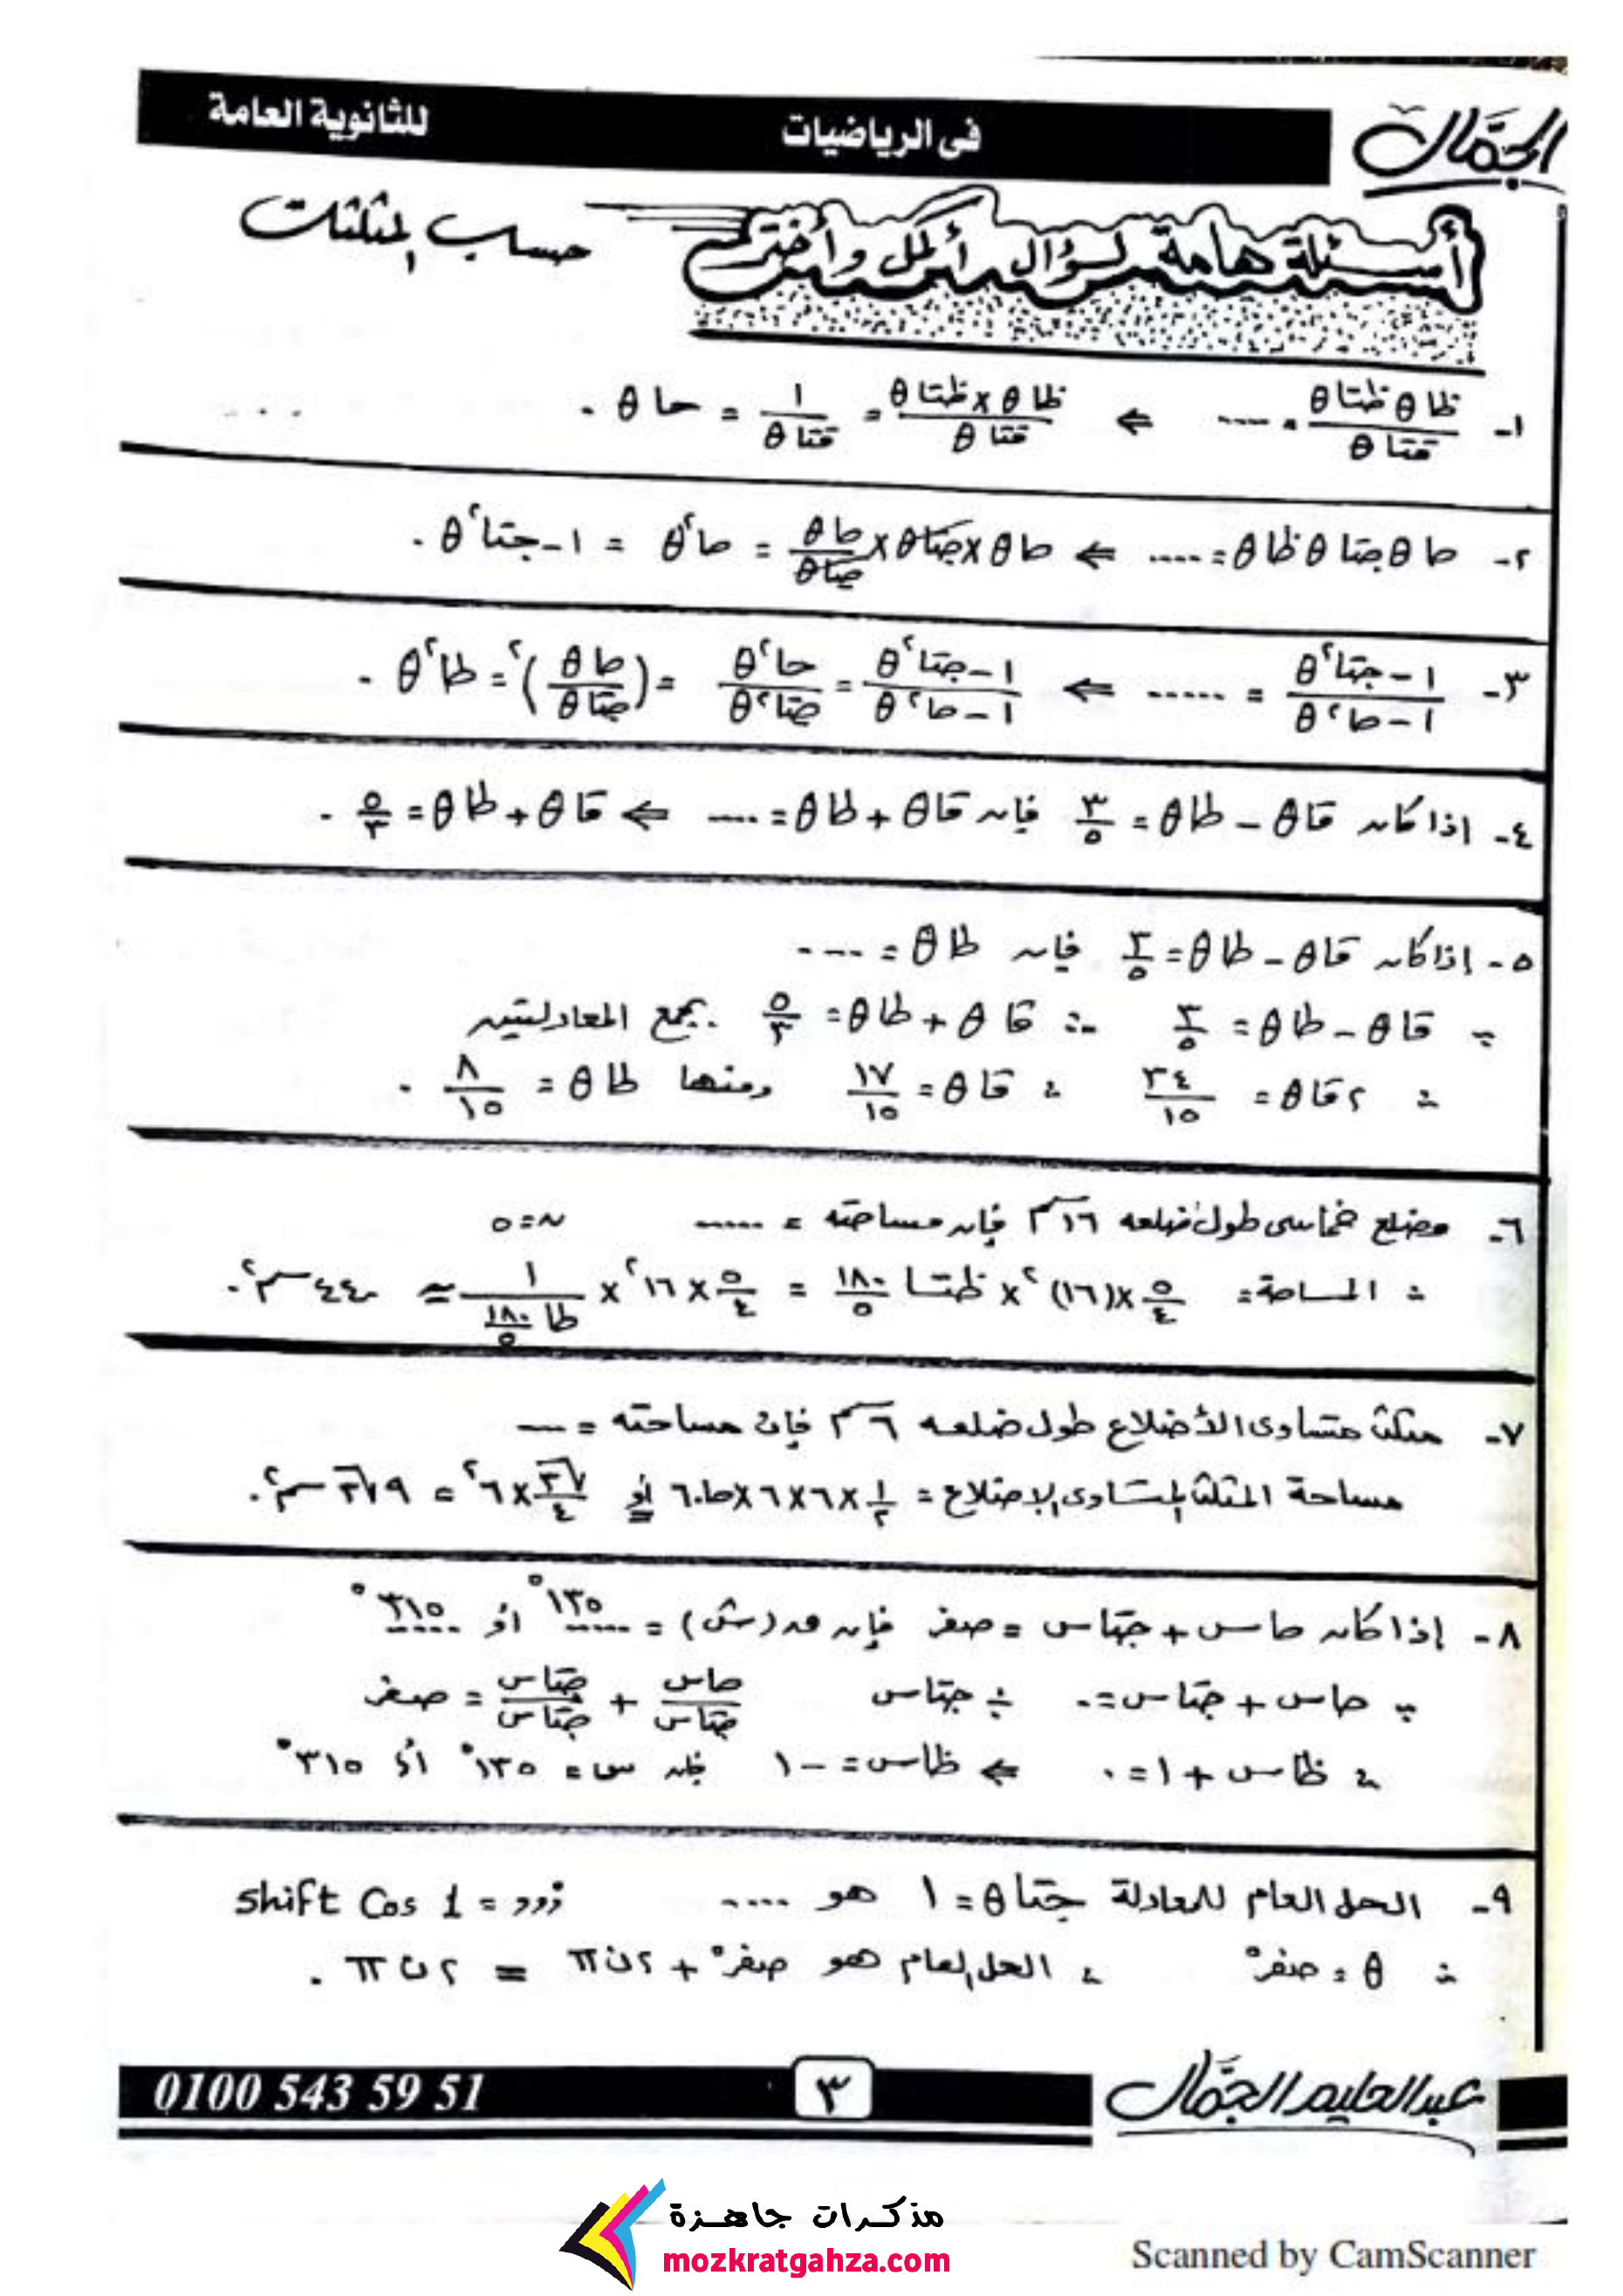 الجمّال
فى الرياضيات
للثانوية العامة
أسئلة هامة لسؤال أكمل وأختر
حساب المثلثات
١- ظا θ ظتا θ / قتا θ = .... ⇐ ظا θ × ظتا θ / قتا θ = ١ / قتا θ = حا θ .
٢- حا θ جتا θ ظا θ = .... ⇐ حا θ × جتا θ × حا θ / جتا θ = حا² θ = ١ - جتا² θ .
٣- ١ - جتا² θ / ١ - حا² θ = ..... ⇐ ١ - جتا² θ / ١ - حا² θ = حا² θ / جتا² θ = (حا θ / جتا θ)² = ظا² θ .
٤- اذا كان قا θ - ظا θ = ٣/٥ فإن قا θ + ظا θ = .... ⇐ قا θ + ظا θ = ٥/٣ .
٥- إذا كان قا θ - ظا θ = ٣/٥ فإن ظا θ = ....
∵ قا θ - ظا θ = ٣/٥ ∴ قا θ + ظا θ = ٥/٣ بجمع المعادلتين
∴ ٢ قا θ = ٣٤/١٥ ∴ قا θ = ١٧/١٥ ومنها ظا θ = ٨/١٥ .
٦- مضلع خماسى طول ضلعه ١٦ سم فإن مساحته = ..... ن = ٥
∴ المساحة = ٥/٤ × (١٦)² × ظتا ١٨٠/٥ = ٥/٤ × ١٦² × ١ / ظا ١٨٠/٥ ≃ ٤٤٠ سم² .
٧- مثلث متساوى الأضلاع طول ضلعه ٦ سم فإن مساحته = ....
مساحة المثلث المتساوى الاضلاع = ١/٢ × ٦ × ٦ × حا ٦٠ أو √٣/٤ × ٦² = ٩√٣ سم² .
٨- إذا كان حاس + جتاس = صفر فإن ق(س) = ١٣٥° أو ٣١٥°
∵ حاس + جتاس = ٠ ÷ جتاس حاس / جتاس + جتاس / جتاس = صفر
∴ ظاس + ١ = ٠ ⇐ ظاس = -١ فإن س = ١٣٥° أو ٣١٥°
٩- الحل العام للمعادلة جتا θ = ١ هو .... shift Cos 1 =
∴ θ = صفر° ∴ الحل العام هو صفر° + ٢ ن π = ٢ ن π .
0100 543 59 51
٣
عبدالحليم الجمّال
مذكرات جاهزة
mozkratgahza.com
Scanned by CamScanner